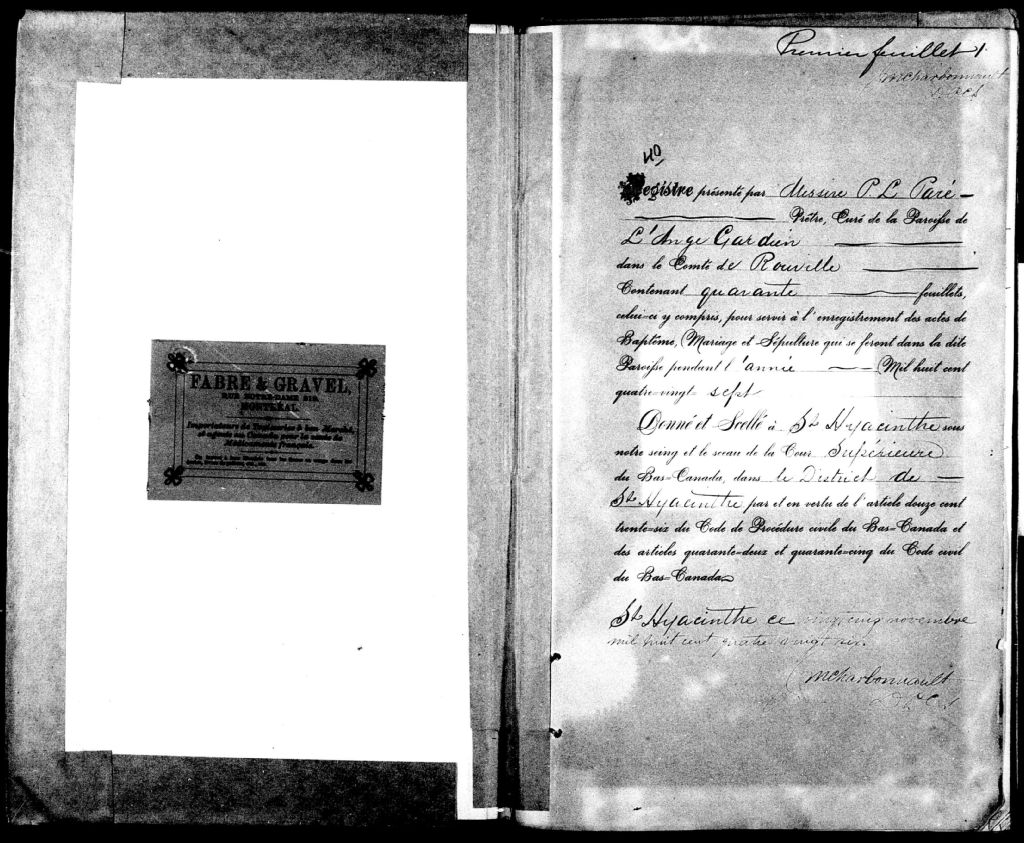 FABRE & GRAVEL,
RUE NOTRE-DAME 219
MONTRÉAL
Premier feuillet 1.
MCharbonnault
40
Registre présenté par Messire P L Paré
Prêtre, Curé de la Paroisse de
L'Ange Gardien
dans le Comté de Rouville
Contenant quarante feuillets,
celui-ci y compris, pour servir à l'enregistrement des actes de
Baptême, Mariage et Sépulture qui se feront dans la dite
Paroisse pendant l'année Mil huit cent
quatre-vingt- sept
Donné et Scellé à St Hyacinthe sous
notre seing et le sceau de la Cour Supérieure
du Bas-Canada, dans le District de
St Hyacinthe par et en vertu de l'article douze cent
trente-six du Code de Procédure civile du Bas-Canada et
des articles quarante-deux et quarante-cinq du Code civil
du Bas-Canada
St Hyacinthe ce vingt cinq novembre
mil huit cent quatre vingt six.
MCharbonnault